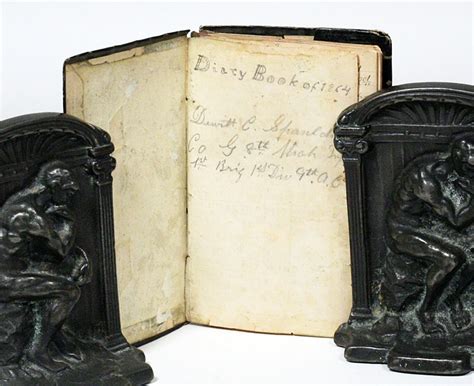 Diary Book of 1864
Dewitt C. Spauld
Co G 8th Mich
1st Brig 1st Div 9th A.C